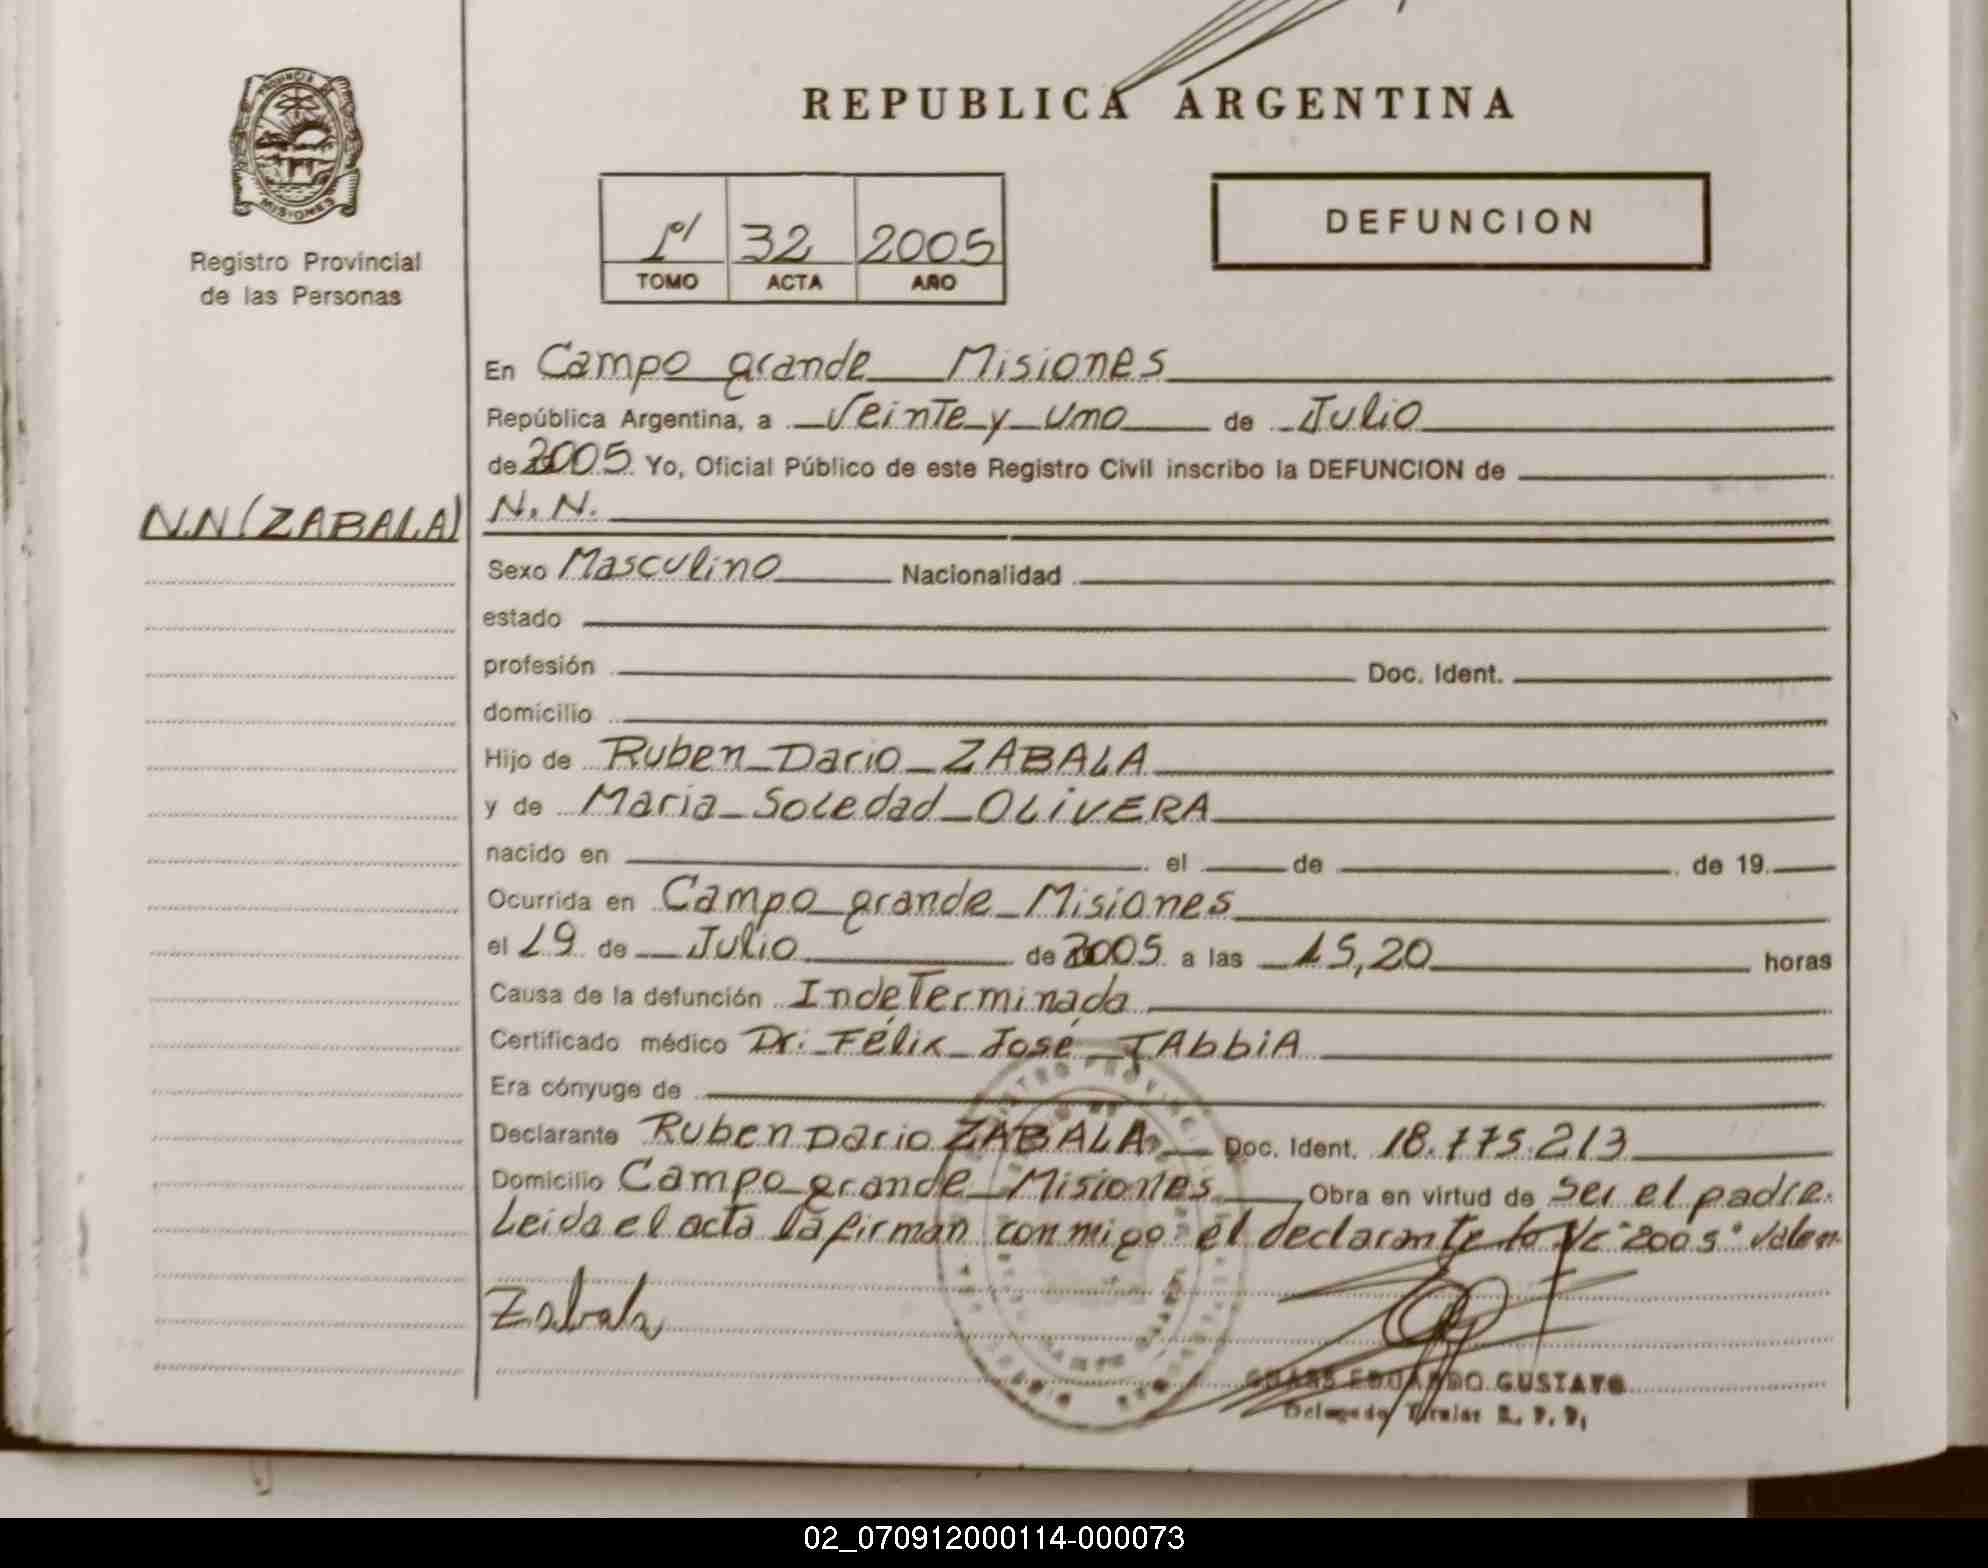 REPUBLICA ARGENTINA
PROVINCIA
MISIONES
Registro Provincial
de las Personas
1º 32 2005
TOMO ACTA AÑO
DEFUNCION
En Campo grande Misiones
República Argentina, a Veinte y uno de Julio
de 2005 Yo, Oficial Público de este Registro Civil inscribo la DEFUNCION de
N.N (ZABALA) N. N.
Sexo Masculino Nacionalidad
estado
profesión Doc. Ident.
domicilio
Hijo de Ruben Dario ZABALA
y de Maria Soledad OLIVERA
nacido en el de de 19
Ocurrida en Campo grande Misiones
el 19 de Julio de 2005 a las 15,20 horas
Causa de la defunción Indeterminada
Certificado médico Dr: Félix José TAbbiA
Era cónyuge de
Declarante Ruben Dario ZABALA Doc. Ident. 18.775.213
Domicilio Campo grande Misiones Obra en virtud de ser el padre.
Leida el acta la firman conmigo el declarante "2005" Valen
Zabala
EDUARDO GUSTAVO
Delegado Titular R. P. P.
02_070912000114-000073